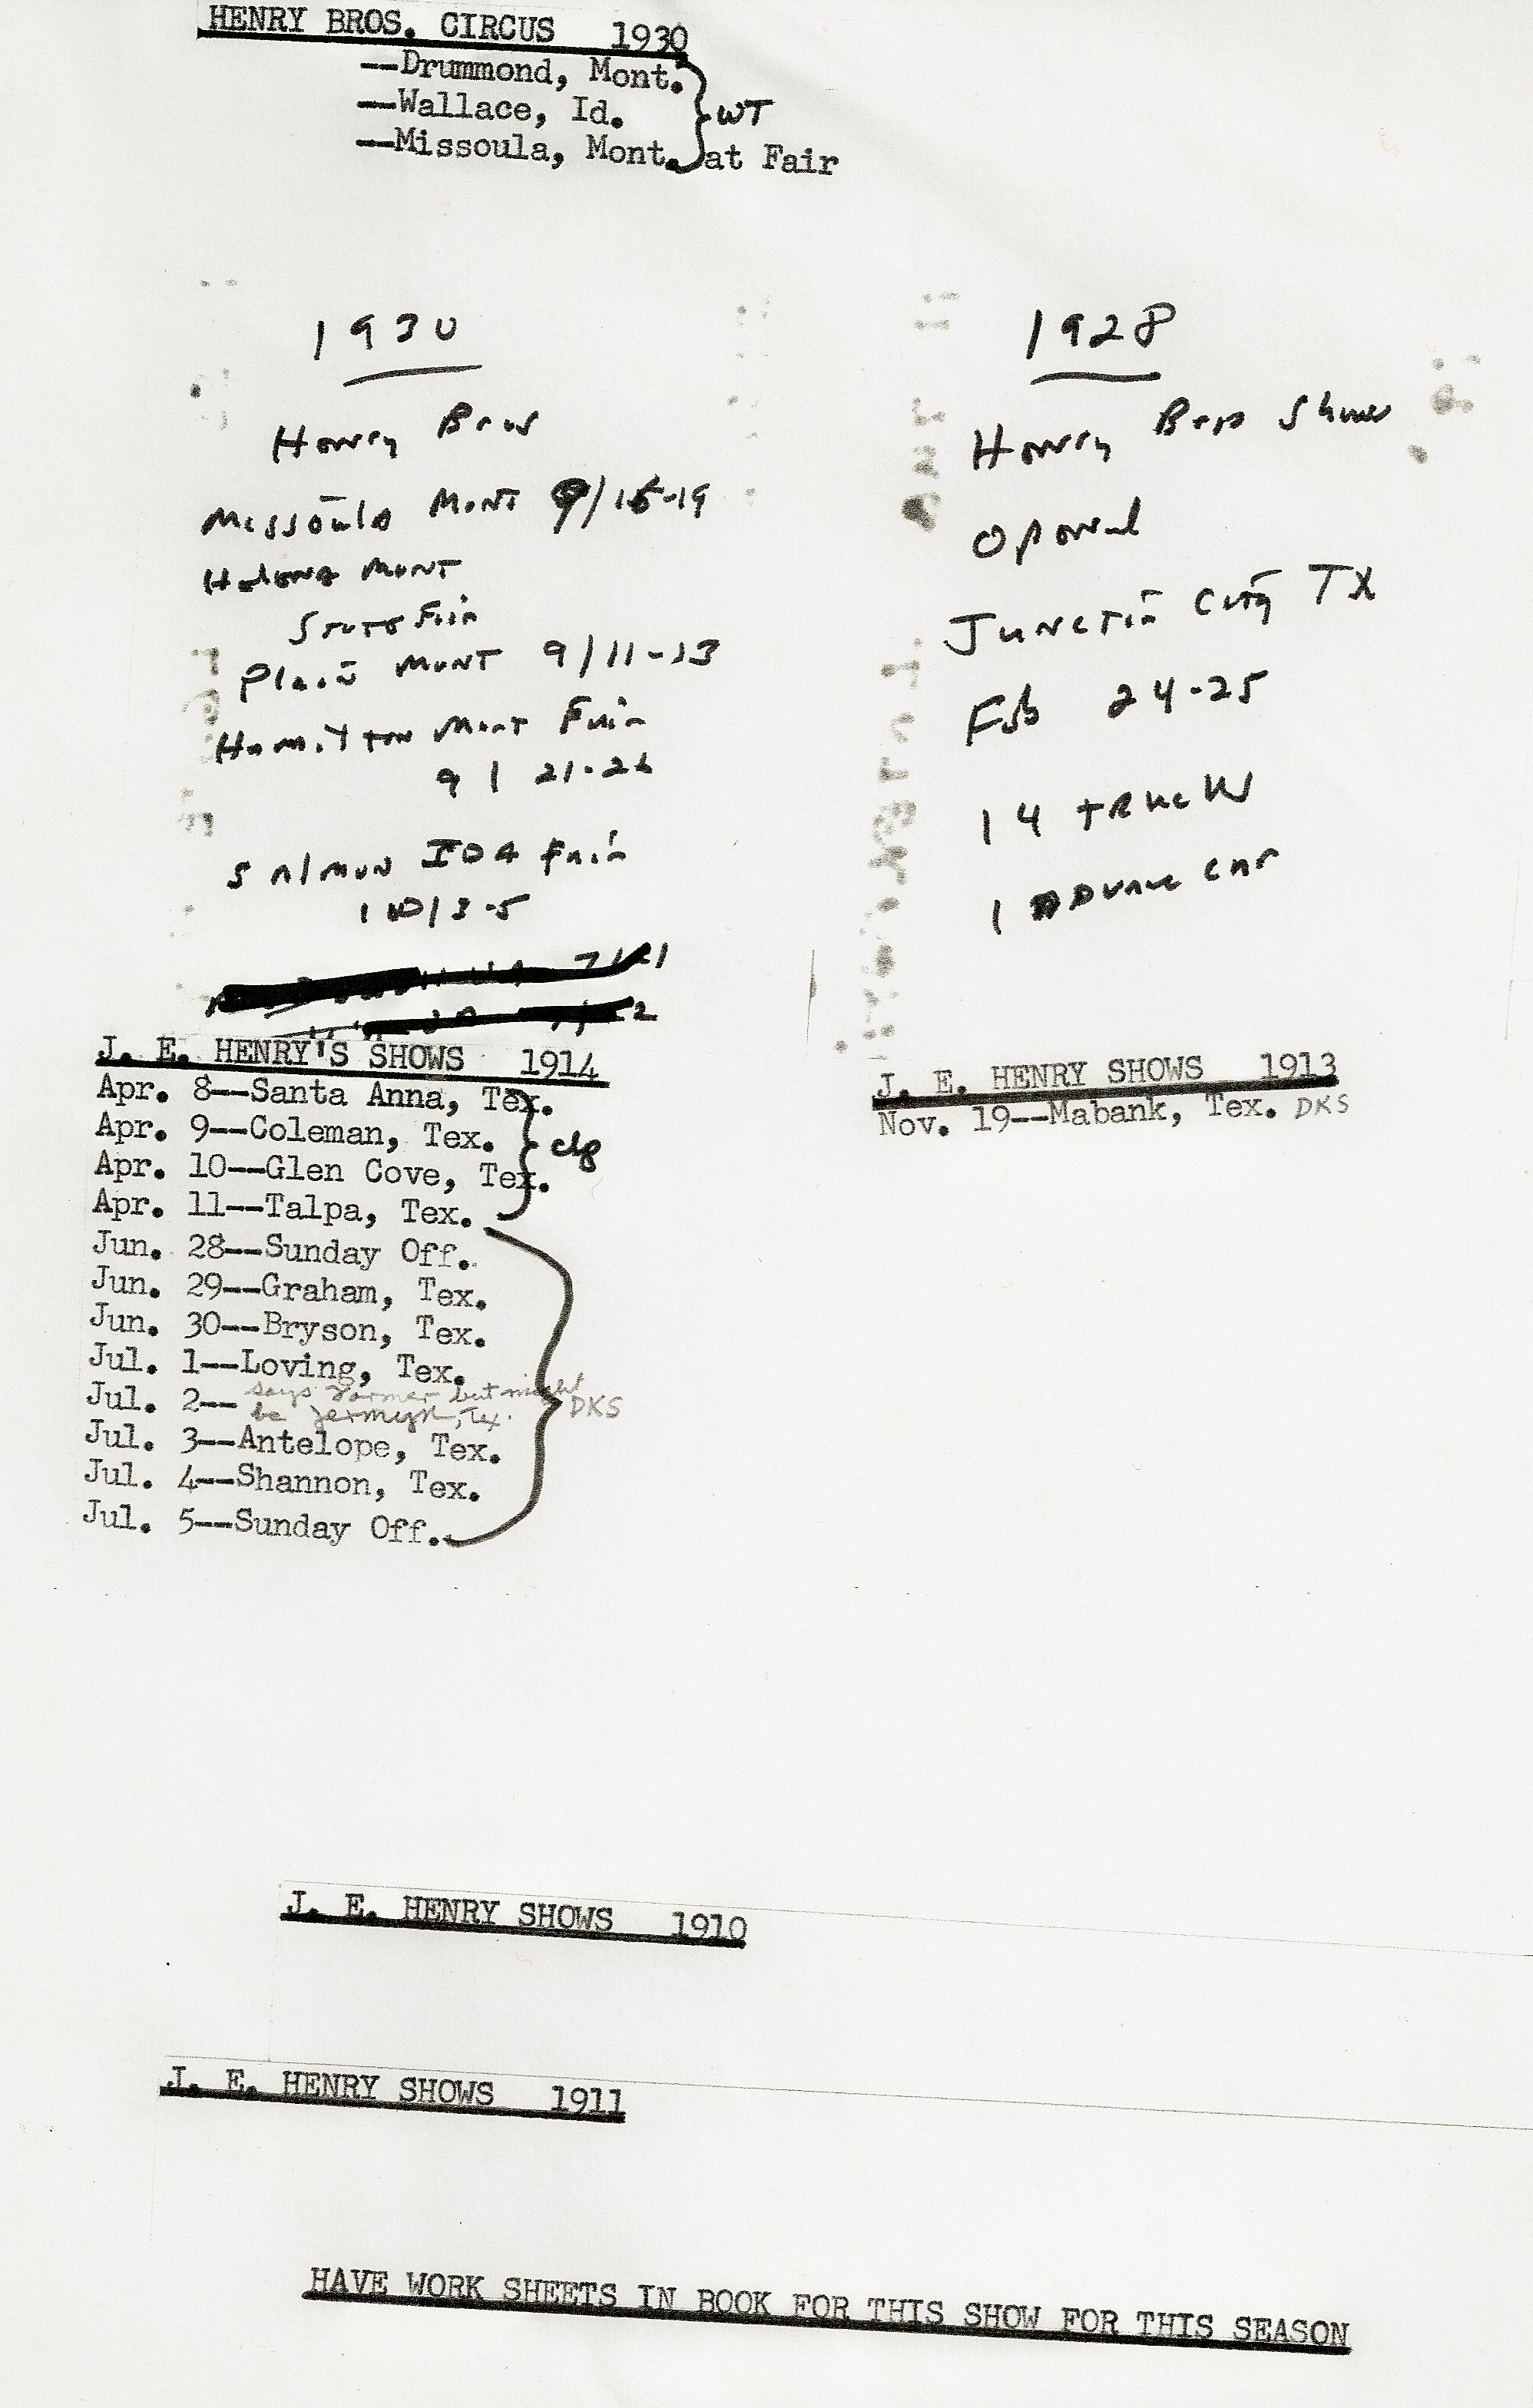 HENRY BROS. CIRCUS 1930
--Drummond, Mont.
--Wallace, Id. WT
--Missoula, Mont. at Fair
1930
Henry Bros
Missoula Mont 9/15-19
Helena Mont
State Fair
Plains Mont 9/11-13
Hamilton Mont Fair
9/21-26
Salmon IDA Fair
10/3-5
1928
Henry Bros Shows
Opened
Junction City TX
Feb 24-25
14 Trucks
1 Advance car
J. E. HENRY'S SHOWS 1914
Apr. 8--Santa Anna, Tex.
Apr. 9--Coleman, Tex. clg
Apr. 10--Glen Cove, Tex.
Apr. 11--Talpa, Tex.
Jun. 28--Sunday Off.
Jun. 29--Graham, Tex.
Jun. 30--Bryson, Tex.
Jul. 1--Loving, Tex.
Jul. 2-- says but might
be Jermyn, Tex. DKS
Jul. 3--Antelope, Tex.
Jul. 4--Shannon, Tex.
Jul. 5--Sunday Off.
J. E. HENRY SHOWS 1913
Nov. 19--Mabank, Tex. DKS
J. E. HENRY SHOWS 1910
J. E. HENRY SHOWS 1911
HAVE WORK SHEETS IN BOOK FOR THIS SHOW FOR THIS SEASON